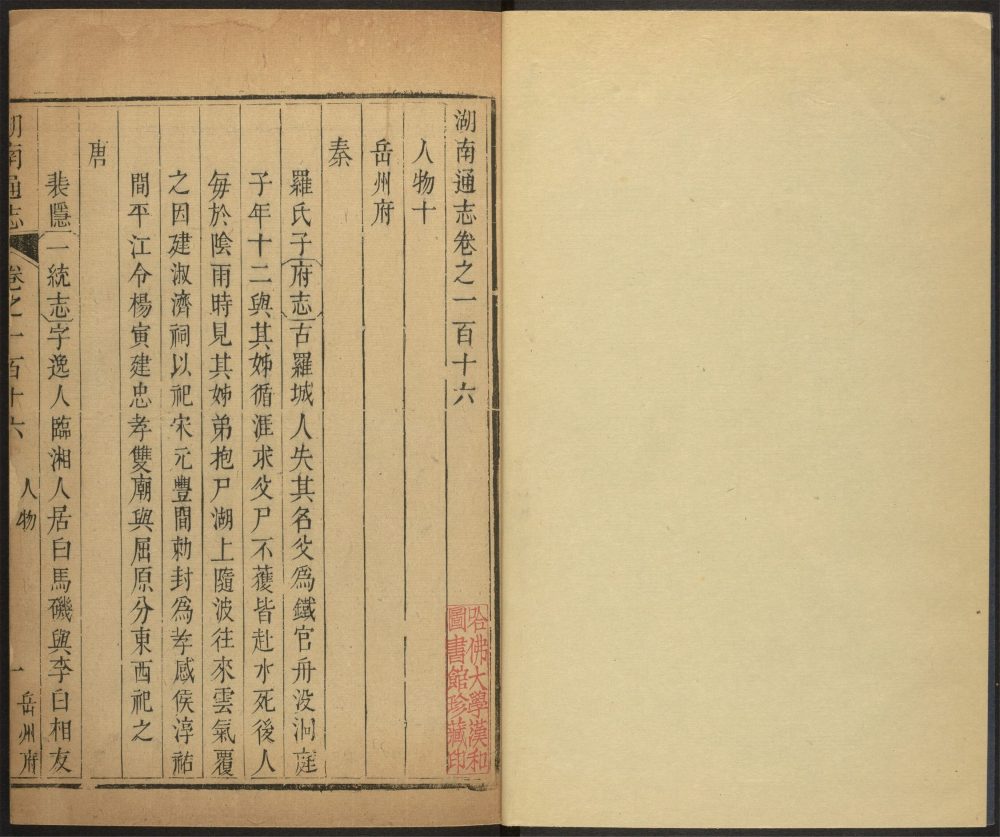 湖南通志卷之一百十六
人物十
岳州府
秦
羅氏子府志古羅城人失其名父為鐵官舟没洞庭
子年十二與其姊循涯求父尸不獲皆赴水死後人
每於陰雨時見其姊弟抱尸湖上隨波往來雲氣覆
之因建淑濟祠以祀宋元豐間勅封為孝感侯淳祐
間平江令楊寅建忠孝雙廟與屈原分東西祀之
唐
裴隱一統志字逸人臨湘人居白馬磯與李白相友
湖南通志 卷之一百十六 人物 一 岳州府
哈佛大學漢和
圖書館珍藏印